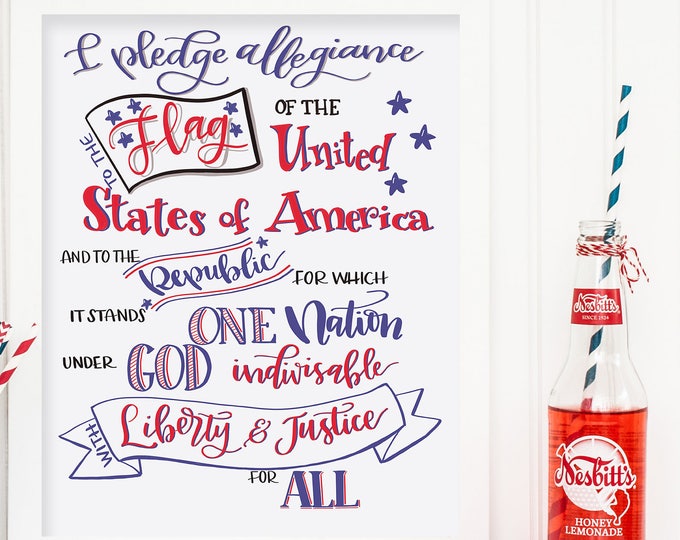 I pledge allegiance
TO THE Flag OF THE
United
States of America
AND TO THE Republic FOR WHICH
IT STANDS ONE Nation
UNDER GOD indivisable
WITH Liberty & Justice
FOR ALL
Nesbitt's
SINCE 1924
Nesbitt's
HONEY
LEMONADE